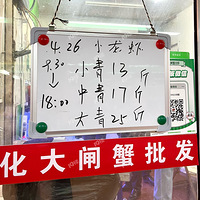 4.26 小龙虾
9.30 小青 13 斤
↓ 中青 17 斤
18:00 大青 25 斤
化大闸蟹批发